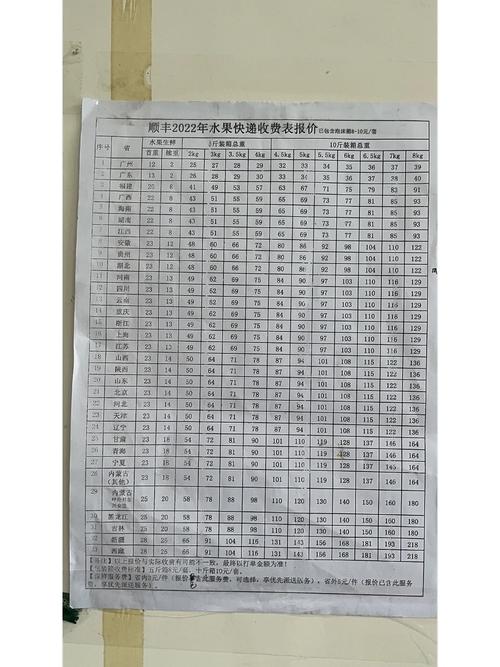 顺丰2022年水果快递收费表报价已包含泡沫箱8-10元/套
序号 省 水果生鲜 5斤装箱总重 10斤装箱总重
首重 续重 2kg 3kg 3.5kg 4kg 4.5kg 5kg 5.5kg 6kg 6.5kg 7kg 8kg
1 广州 12 2 25 27 28 29 32 33 34 35 36 37 39
2 广东 13 2 26 28 29 30 33 34 35 36 37 38 40
3 福建 20 8 41 49 53 57 63 67 71 75 79 83 91
4 广西 22 8 43 51 55 59 65 69 73 77 81 85 93
5 海南 22 8 43 51 55 59 65 69 73 77 81 85 93
6 湖南 22 8 43 51 55 59 65 69 73 77 81 85 93
7 江西 22 8 43 51 55 59 65 69 73 77 81 85 93
8 安徽 23 12 48 60 66 72 80 86 92 98 104 110 122
9 贵州 23 12 48 60 66 72 80 86 92 98 104 110 122
10 湖北 23 12 48 60 66 72 80 86 92 98 104 110 122
11 河南 23 13 49 62 69 75 84 90 97 103 110 116 129
12 四川 23 13 49 62 69 75 84 90 97 103 110 116 129
13 云南 23 13 49 62 69 75 84 90 97 103 110 116 129
14 重庆 23 13 49 62 69 75 84 90 97 103 110 116 129
15 浙江 23 13 49 62 69 75 84 90 97 103 110 116 129
16 上海 23 13 49 62 69 75 84 90 97 103 110 116 129
17 江苏 23 13 49 62 69 75 84 90 97 103 110 116 129
18 山西 23 14 50 64 71 78 87 94 101 108 115 122 136
19 陕西 23 14 50 64 71 78 87 94 101 108 115 122 136
20 山东 23 14 50 64 71 78 87 94 101 108 115 122 136
21 北京 23 14 50 64 71 78 87 94 101 108 115 122 136
22 河北 23 14 50 64 71 78 87 94 101 108 115 122 136
23 天津 23 14 50 64 71 78 87 94 101 108 115 122 136
24 辽宁 23 14 50 64 71 78 87 94 101 108 115 122 136
25 甘肃 23 18 54 72 81 90 101 110 119 128 137 146 164
26 青海 23 18 54 72 81 90 101 110 119 128 137 146 164
27 宁夏 23 18 54 72 81 90 101 110 119 128 137 146 164
28 内蒙古(其他) 23 18 54 72 81 90 101 110 119 128 137 146 164
29 内蒙古 25 20 58 78 88 98 110 120 130 140 150 160 180
30 黑龙江 25 20 58 78 88 98 110 120 130 140 150 160 180
31 吉林 25 20 58 78 88 98 110 120 130 140 150 160 180
32 新疆 28 25 66 91 104 116 131 143 156 168 181 193 218
33 西藏 28 25 66 91 104 116 131 143 156 168 181 193 218
【备注】以上报价与实际收费有可能不一致，最终以打单金额为准！
【包装箱收费标准】五斤箱8元/套，十斤箱10元/套。
【保鲜服务费】省内2元/件（报价已含此服务费，可选择，享优先派送服务）。省外5元/件（报价已含此服务
费，享优先派送服务）。